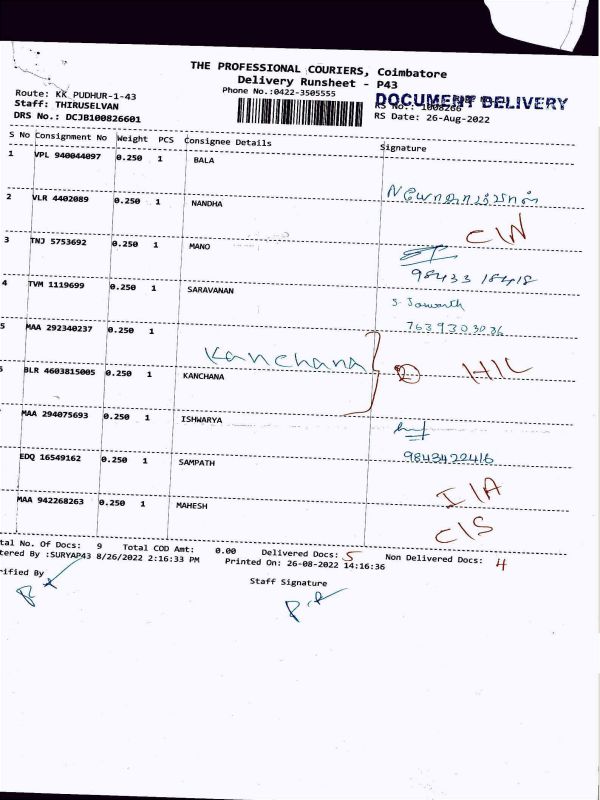 THE PROFESSIONAL COURIERS, Coimbatore
Delivery Runsheet - P43
Phone No.:0422-3505555
DOCUMENT DELIVERY
Route: KK PUDHUR-1-43
Staff: THIRUSELVAN
DRS No.: DCJB100826601
RS No.: 1008266
RS Date: 26-Aug-2022
S No Consignment No Weight PCS Consignee Details Signature
1 VPL 940044097 0.250 1 BALA
2 VLR 4402089 0.250 1 NANDHA
C/N
3 TNJ 5753692 0.250 1 MANO
98433 18418
4 TVM 1119699 0.250 1 SARAVANAN
7639303036
5 MAA 292340237 0.250 1
Kanchana
H/L
BLR 4603815005 0.250 1 KANCHANA
MAA 294075693 0.250 1 ISHWARYA
9843422416
EDQ 16549162 0.250 1 SAMPATH
I/A
MAA 942268263 0.250 1 MAHESH
C/S
tal No. Of Docs: 9 Total COD Amt: 0.00 Delivered Docs: 5 Non Delivered Docs: 4
tered By :SURYAP43 8/26/2022 2:16:33 PM Printed On: 26-08-2022 14:16:36
rified By Staff Signature